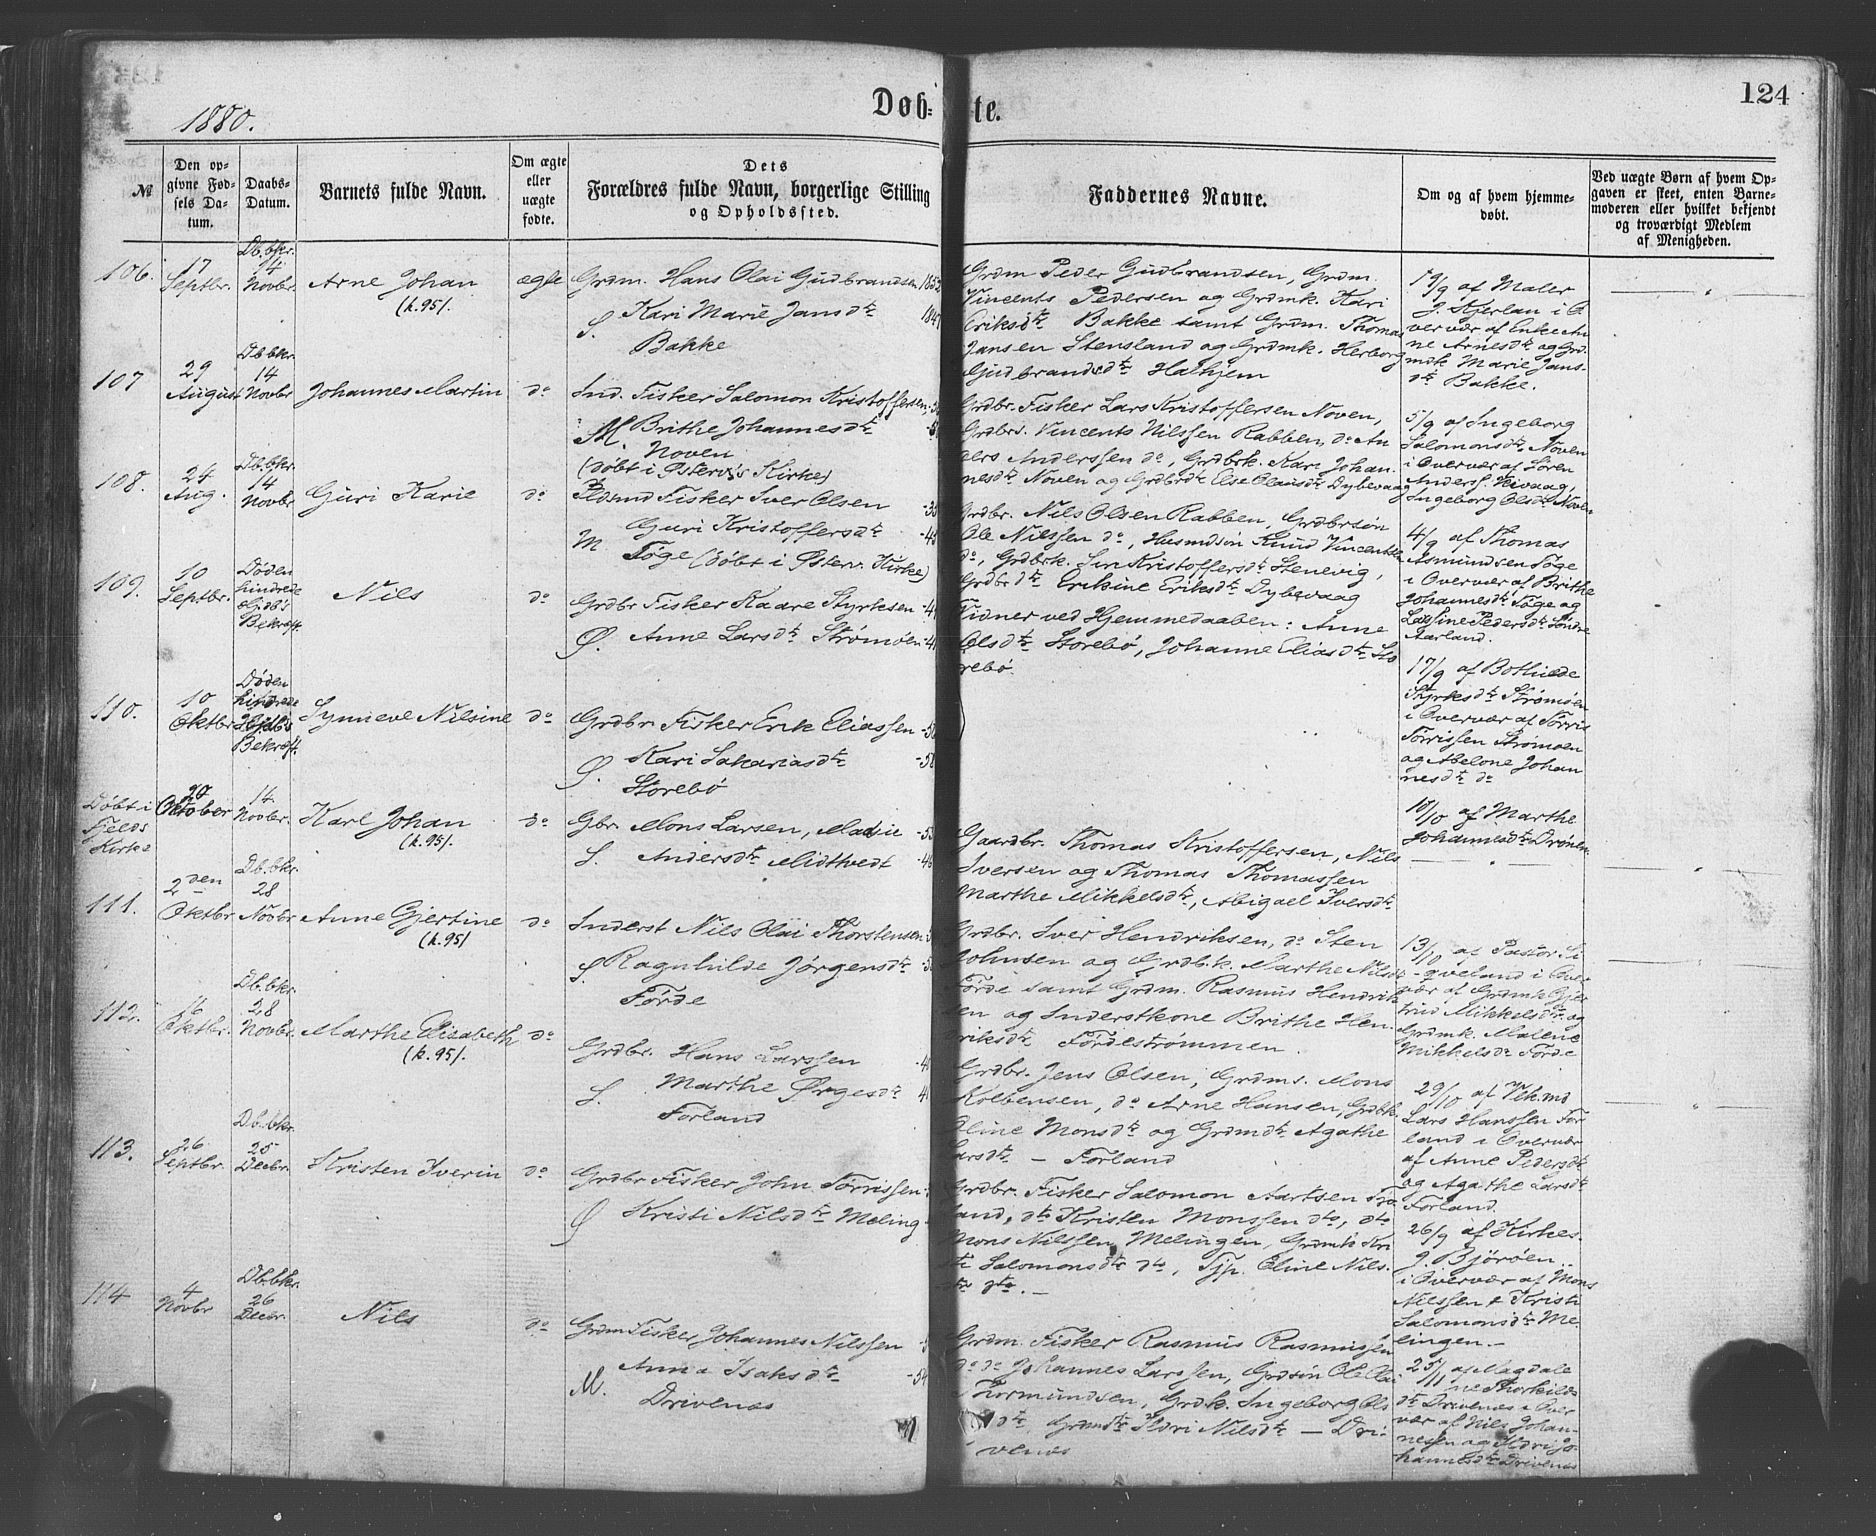 124
1880.
Døb-
te.
№
Den op-
givne Fød-
sels Da-
tum.
Daabs-
Datum.
Barnets fulde Navn.
Om ægte
eller
uægte
fødte.
Dets
Forældres fulde Navn, borgerlige Stilling
og Opholdssted.
Faddernes Navne.
Om og af hvem hjemme-
døbt.
Ved uægte Børn af hvem Op-
gaven er skeet, enten Barne-
moderen eller hvilket bekjendt
og troværdigt Medlem
af Menigheden.
106.
17
Septbr.
Db.bkr.
14
Novbr
Arne Johan
(k.95).
ægte
Grdm. Hans Olai Gudbrandsen 1852
Kari Marie Jansdtr 1847
S. Bakke
Grdm Peder Gudbrandsen, Grdm.
Vincents Pedersen og Grdmk. Kari
Eriksdtr Bakke samt Grdm. Thomas
Jansen Stensland og Grdmk. Herborg
Gudbrandsdtr Halhjem
19/9 af Maler
J. Kjerlan i O
vervær af Enke An
ne Arnesdtr og Grd
mdk Marie Jans-
dtr Bakke.
107
29
August
Db.bkr.
14
Novbr
Johannes Martin
do
Ind. Fisker Salomon Kristoffersen
M. Brithe Johannesdtr
Noven
(døbt i Østerv's Kirke)
Grdbr. Fisker Lars Kristoffersen Noven,
Grdbrs. Vincents Nilssen Rabben, do An
ders Anderssen do, Grdbrk. Kari Johan.
nesdtr Noven og Grdbrdtr Else Olausdtr Dybevaag
5/9 af Ingeborg
Salomonsdtr Noven
i Overvær af Søren
Anderss. Vivaag,
Ingeborg Olsdtr Noven
108.
24
Aug.
Db.bkr.
14
Novbr
Guri Karie
do
Fisker Iver Olsen
Guri Kristoffersdtr
M. Føge (døbt i Østerv. Kirke)
Grdbr. Nils Olsen Rabben, Grdbrsøn
Ole Nilssen do, Husmdsøn Knud Vincentse
do, Grdbrk. Siri Kristoffersdtr Stenevig,
Grdbr dtr Erikine Eriksdtr Dybevaag
4/9 af Thomas
Asmundsen Føge
i Overvær af Brithe
Johannesdtr Føge og
Lassine Pedersdtr Søndre
Aarland.
109.
10
Septbr.
Døden
hindrede
Gjdb's
Bekræft.
Nils
do
Grdbr Fisker Kaare Styrksen -41
Ø. Anne Larsdtr Strømøen -41
Vidner ved Hjemmedaaben: Anne
Olsdtr Storebø, Johanne Eliasdtr Sto
rebø
17/9 af Bothilde
Styrksdtr Strømøen
i Overvær af Tørris
Tørrissen Strømøen
og Abelone Johan
nesdtr do
110.
10
Oktbr
Døden
hindrede
Gjdb's
Bekræft.
Synneve Nilsine
do
Grdbr. Fisker Erik Eliassen -58
Kari Sakariasdtr -58
Ø. Storebø
10/10 af Marthe
Johannesdtr Drønen.
Døbt i
Fjelds
Kirke
20
Oktober
14
Novbr.
Karl Johan
(k.95).
do
Gbr. Mons Larsen, Marie
S. Andersdtr Midtvedt -46
Gaardbr. Thomas Kristoffersen, Nils
Iversen og Thomas Thomassen
Marthe Mikkelsdtr, Abigael Iversdtr
111.
2den
Oktbr
Db.bkr.
28
Novbr
Anne Gjertine
(k.95)
do
Inderst Nils Olai Thorstensen
S. Ragnhilde Jørgensdtr
Førde
Grdbr. Iver Hendriksen, do Sten
Johnsen og Grdbk. Marthe Nilsd
Førde samt Grdm. Rasmus Hendrik
sen og Inderstkone Brithe Hen
riksdtr Førdestrømmen.
13/10 af Pastor Si
qveland i Over
vær af Grdmk Gjer
trud Mikkelsdtr og
Grdmk. Malene
Mikkelsdtr Førde
112.
16
Oktbr.
Db.bkr.
28
Novbr.
Marthe Elisabeth
(k.95).
do
Grdbr. Hans Larssen
Marthe Ørgesdtr
S. Forland
Grdbr. Jens Olsen, Grdms. Mons
Kolbensen, do Arne Hansen, Grdbk.
Oline Monsdtr og Grdmdtr Agathe
Larsdtr — Forland
29/10 af Vik.md
Lars Hanssen For
land i Overvær
af Anne Pedersdtr
og Agathe Larsdtr
Forland.
113.
26
Septbr.
Db.bkr.
25
Decbr.
Kristen Iverin
do
Grdbr Fisker John Tørrissen
Ø Kristi Nilsdtr Meling
Grdbr. Fisker Salomon Aartsen Fro
land, dto Kristen Monssen dto, dto
Mons Nilssen Melingen, Grdmk Kri
sti Salomonsdtr dto, Tjp. Oline Nils.
dtr dto. —
26/9 af Kirkes.
J. Bjørøen
i Overvær af Mons
Nilssen & Kristi
Salomonsdtr Me
lingen. —
114
4
Novbr
Db.bkr.
26
Decbr.
Nils
do
Grdm Fisker Johannes Nilssen
Anna Isaksdtr -54
M. Drivenæs
Grdm. Fisker Rasmus Rasmussen
do do Johannes Larssen, Grdsøn Ole Olai
Thormundsen, Grdk. Ingeborg Ols
dtr, Grdmdtr Ildri Nilsdtr — Dri-
venæs
25/11 af Magdale
ne Thorkilds
dtr Drivenæs i Over
vær af Nils Johan-
nessen og Ildri Jo-
hannesdtr Drivenæs